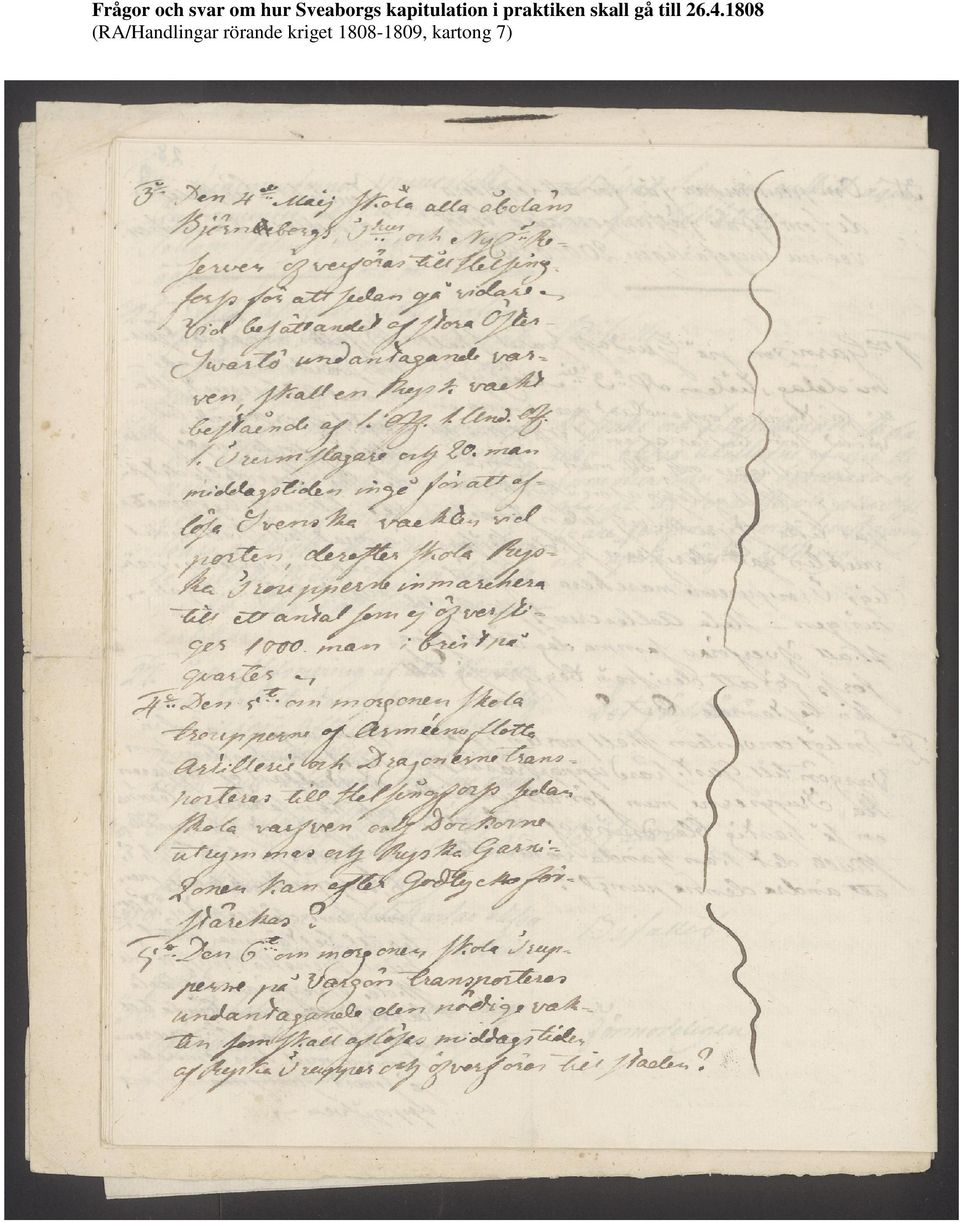 Frågor och svar om hur Sveaborgs kapitulation i praktiken skall gå till 26.4.1808
(RA/Handlingar rörande kriget 1808-1809, kartong 7)
3º Den 4de Maij skola alla åbolän
Björneborgs, och Re-
server öfverföras till Helsing-
fors för att sedan gå vidare
Vid besättandet af stora Öster-
Swartö undantagande var-
ven, skall en Rysk vackt
bestående af 1. Off. 1. Und. Off.
1. Trumslagare och 20. man
middagstiden ingå för att af-
lösa Svenska vackten vid
porten, derefter skola Rys-
ka Troupperne inmarchera
till ett antal som ej öfversti-
ger 1000. man i brist på
quarter
4º Den 5t om morgonen skola
troupperne af Arméens flotta
Artilleri och Dragonerne trans-
porteras till Helsingfors sedan
skola varfven och Dockorne
utrymmas och Ryska Garni-
zonen kan efter Godtycke för-
stärckas?
5º Den 6t om morgonen skola Trup-
perne på Vargön transporteras
undantagande den nödige vak-
ten som skall aflöses middagstiden
af Ryska Trupper och öfverföras till staden?